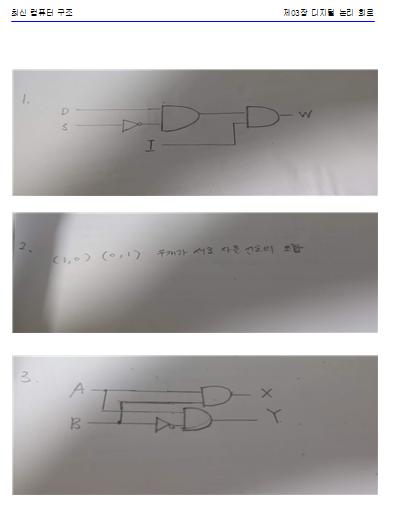 최신 컴퓨터 구조
제03장 디지털 논리 회로
1.
D
S
W
I
2.
(1,0) (0,1) 두개가 서로 다른 신호의 조합
3.
A
X
Y
B